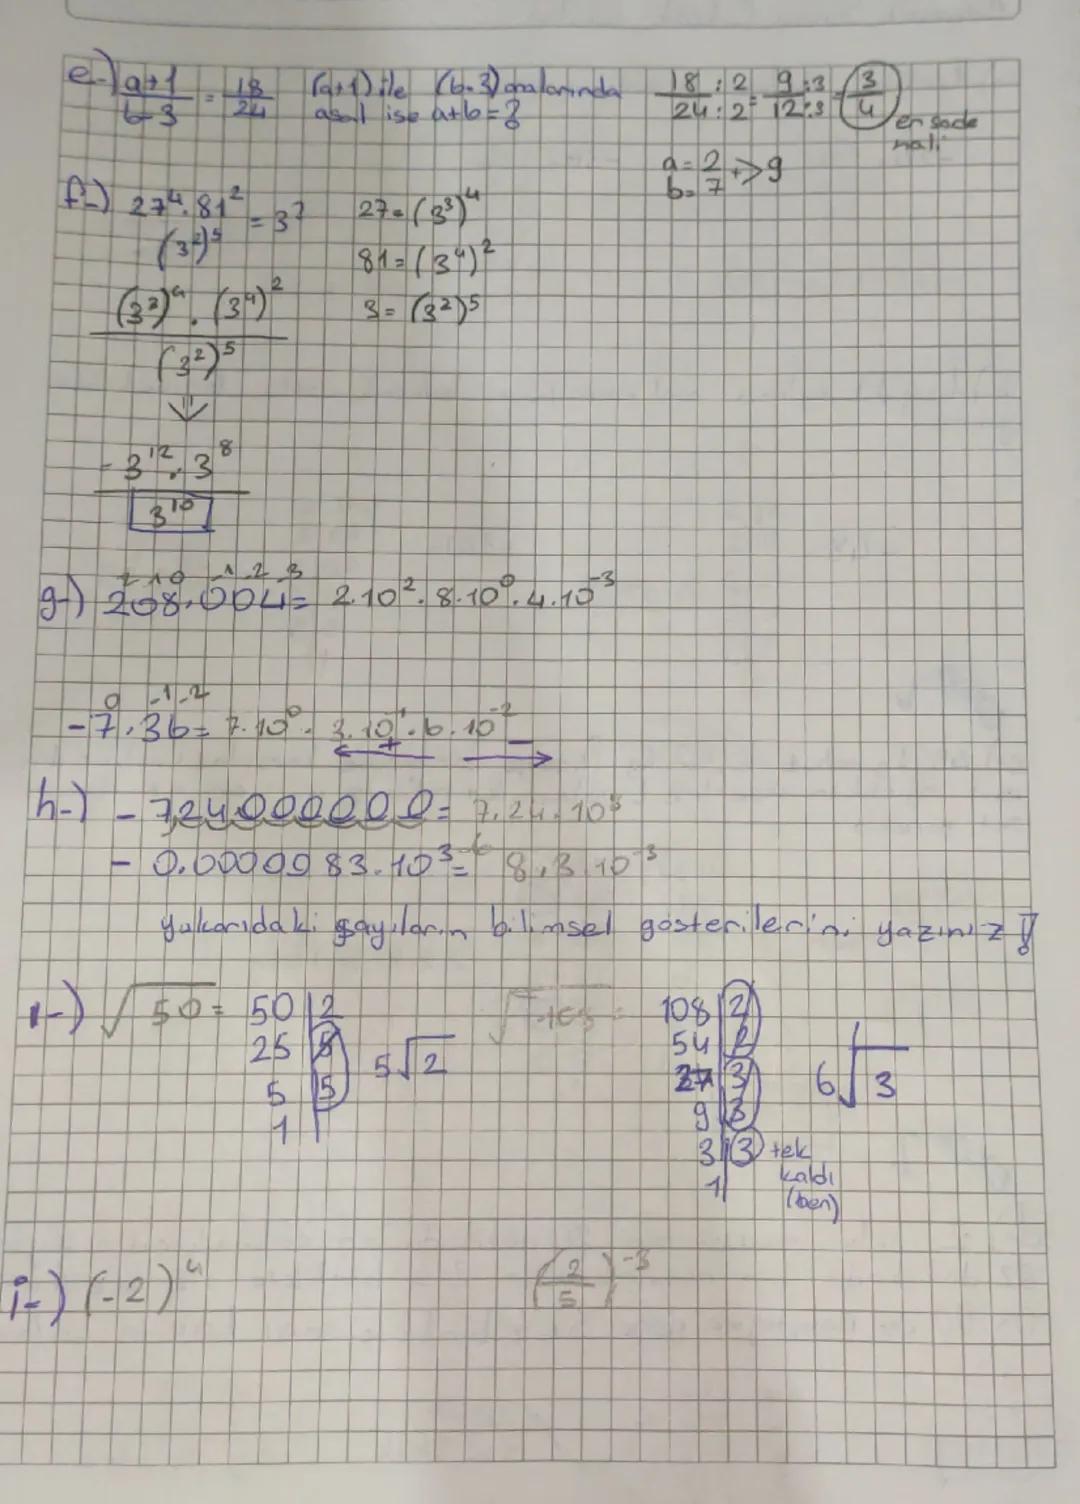 e-) a+1/b-3 = 18/24 (a+1) ile (b-3) aralarında asal ise a+b=? 18:2/24:2 = 9:3/12:3 = 3/4 en sade hali
a=2 b=7 +> 9
f-) 27⁴.81²/(3²)⁵ = 3? 27=(3³)⁴
81=(3⁴)²
(3³)⁴.(3⁴)²/(3²)⁵ 3=(3²)⁵
⇓
- 3¹².3⁸/3¹⁰
2 1 0 -1 -2 -3
g-) 208,004= 2.10².8.10⁰.4.10⁻³
0 -1 -2
-7,36= 7.10⁰.3.10⁻¹.6.10⁻²
+ -
h-) - 724000000=
- 0.0000083.10³= 8,3.10⁻³
yukarıdaki sayıların bilimsel gösterilerini yazınız !
ı-) √50= 50 2 √108= 108 2
25 5 5√2 54 2
5 5 27 3 6√3
1 9 3
3 3 tek
1 kaldı
(ben)
i-) (-2)⁴ (2/5)⁻³